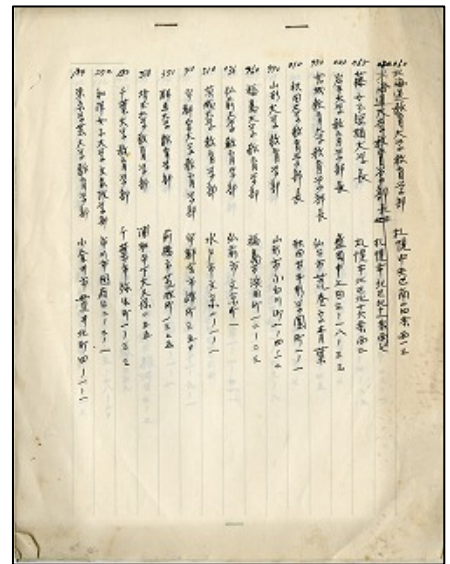 060 北海道教育大学教育学部 札幌市中央区南
北海道大学教育学部長 札幌市北区北十一条西七
藤女子短期大学長 札幌市北区北十六条西二
020 岩手大学教育学部長 盛岡市上田三ー一八ー三三
宮城教育大学教育学部長 仙台市荒巻字青葉
010 秋田大学教育学部長 秋田市手形学園町一ー一
990 山形大学教育学部 山形市小白川町一ー四ー一二
960 福島大学教育学部 福島市浜田町一二ー二三
036 弘前大学教育学部 弘前市文京町一
310 茨城大学教育学部 水戸市文京二ー一ー一
宇都宮大学教育学部 宇都宮市峰町
群馬大学教育学部 前橋市荒牧町
埼玉大学教育学部 浦和市下大久保二五五
千葉大学教育学部 千葉市弥生町一ー三三
和洋女子大学文家政学部 市川市国府台二ー三ー一
184 東京学芸大学教育学部 小金井市貫井北町四ー一ー一